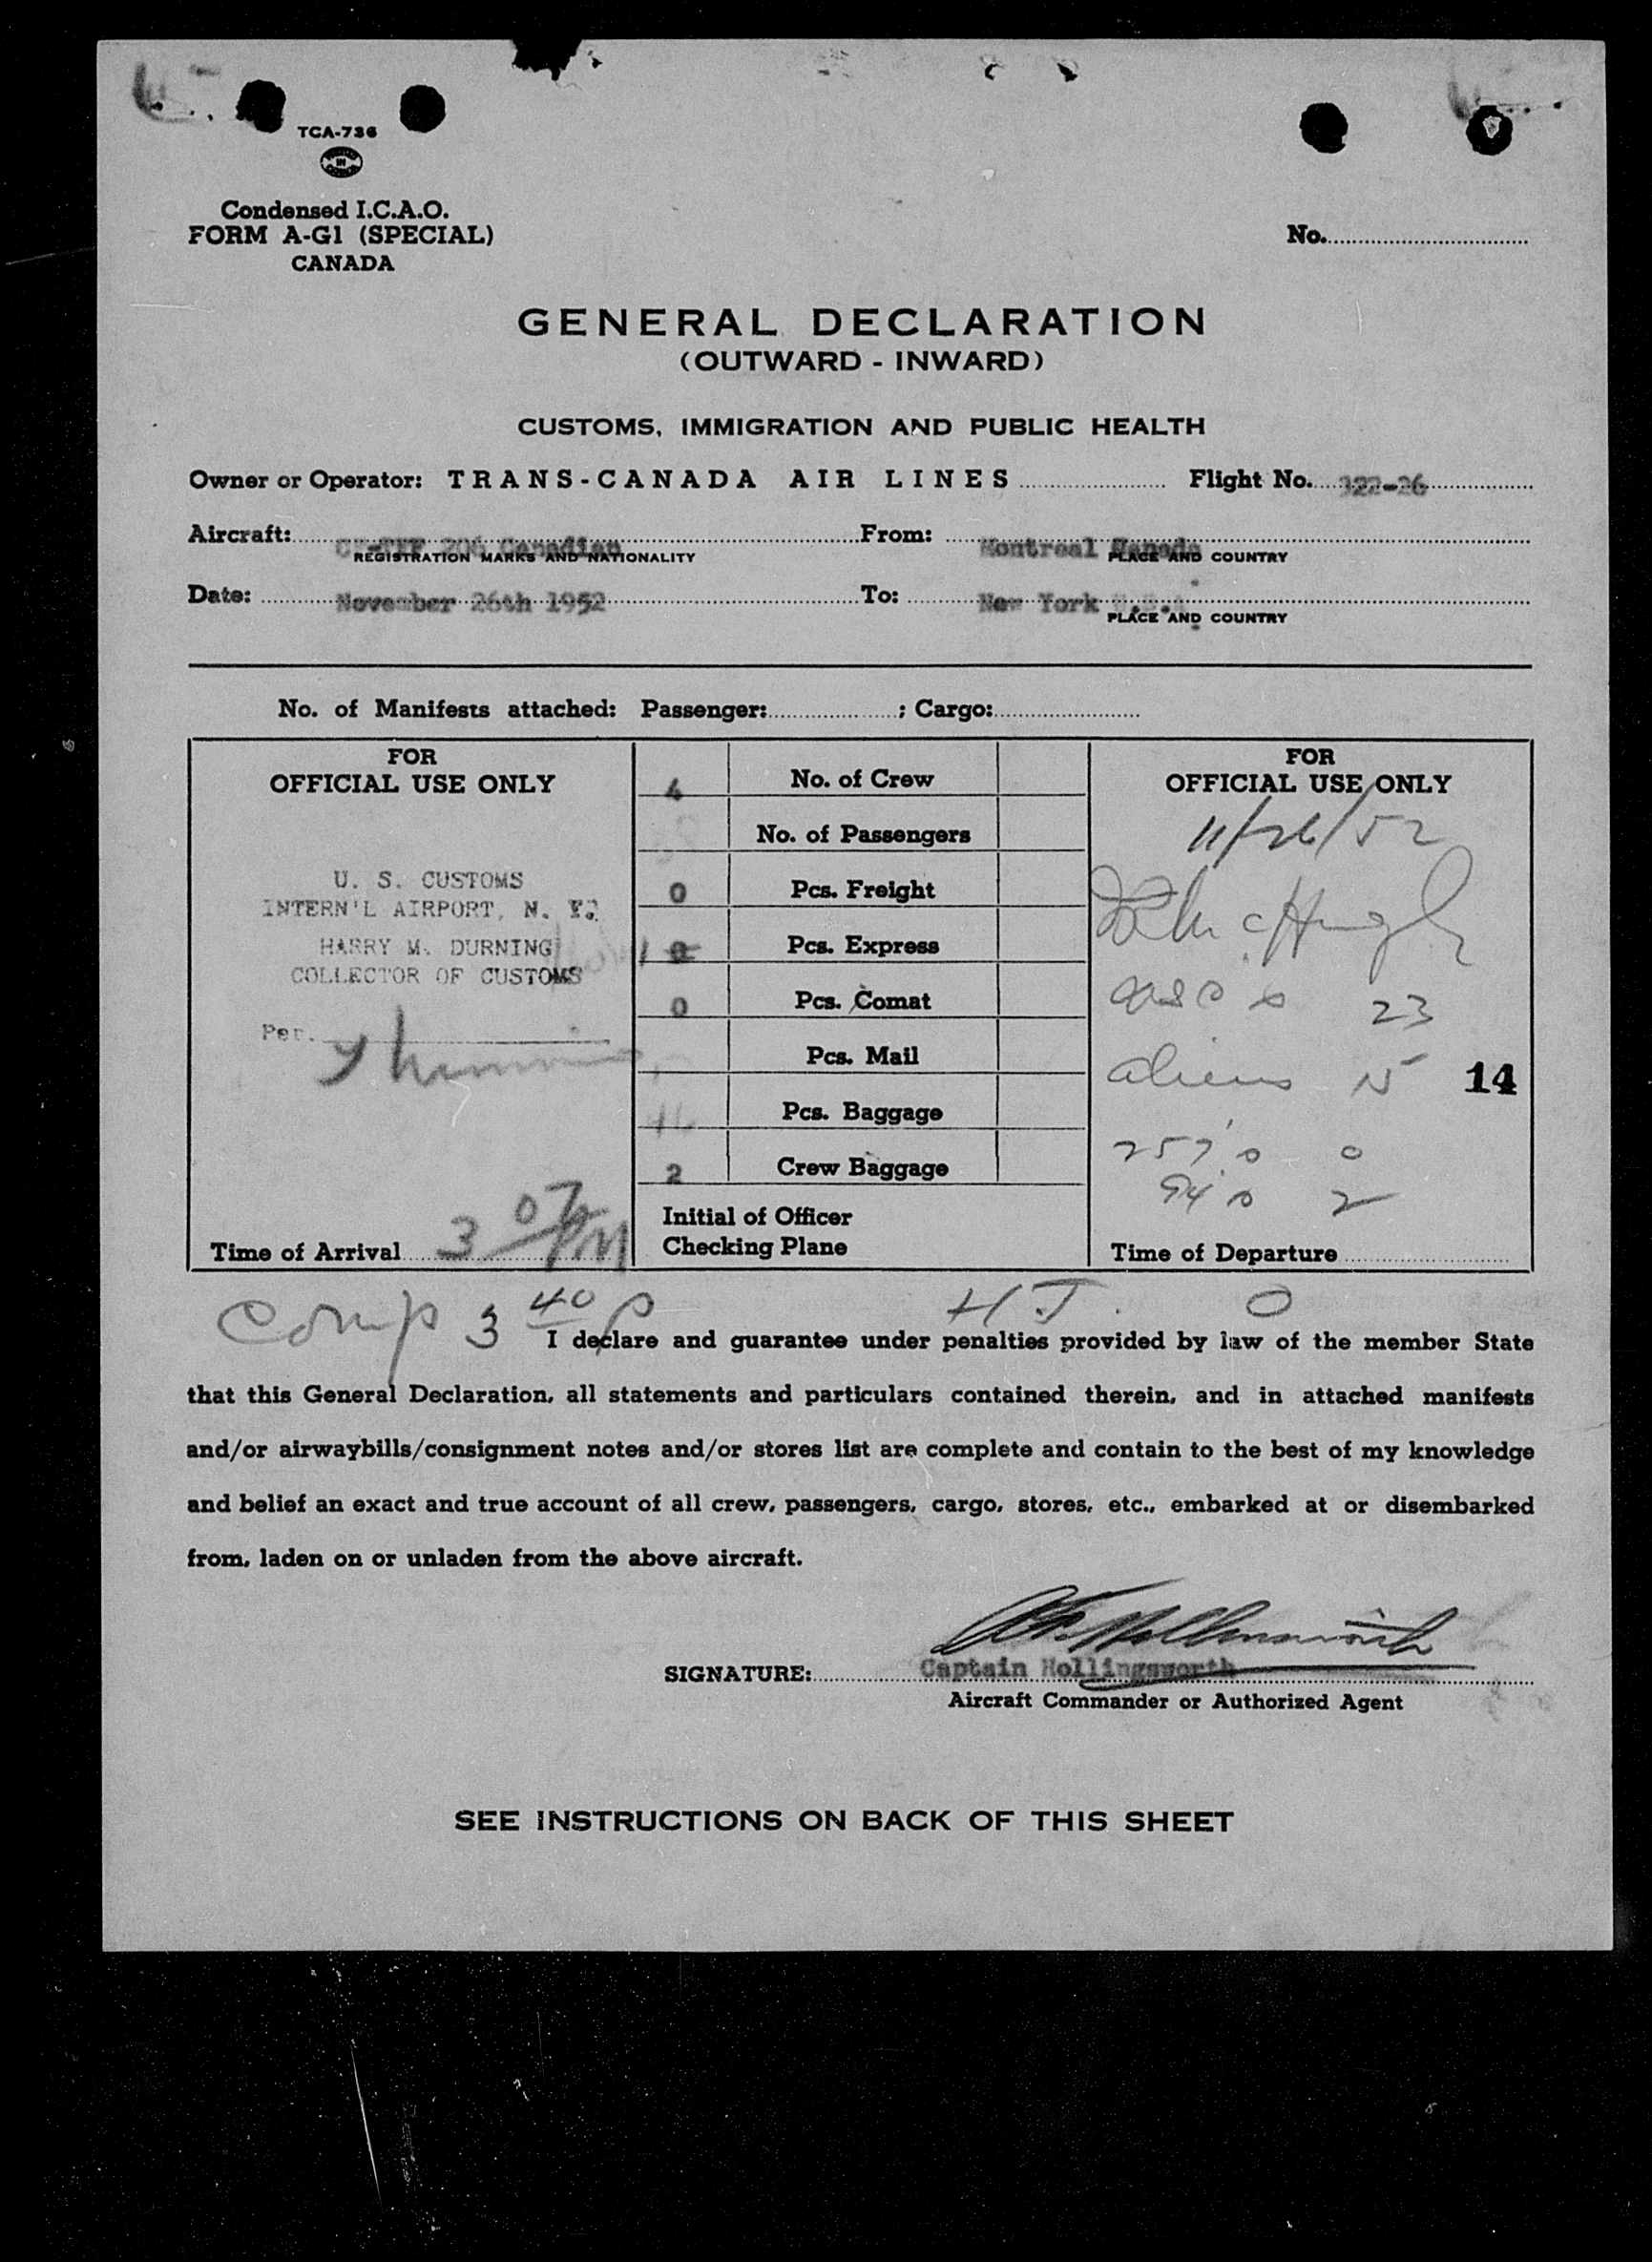 TCA-736
Condensed I.C.A.O.
FORM A-G1 (SPECIAL)
CANADA
No.
GENERAL DECLARATION
(OUTWARD - INWARD)
CUSTOMS, IMMIGRATION AND PUBLIC HEALTH
Owner or Operator: TRANS-CANADA AIR LINES Flight No. 322-26
Aircraft: 206 Canadian From: Montreal Canada
REGISTRATION MARKS AND NATIONALITY PLACE AND COUNTRY
Date: November 26th 1952 To: New York U.S.A
PLACE AND COUNTRY
No. of Manifests attached: Passenger: ; Cargo:
FOR
OFFICIAL USE ONLY
U. S. CUSTOMS
INTERN'L AIRPORT, N. Y.
HARRY M. DURNING
COLLECTOR OF CUSTOMS
Per.
Time of Arrival 3 07 PM
4 No. of Crew
No. of Passengers
0 Pcs. Freight
1 0 Pcs. Express
0 Pcs. Comat
Pcs. Mail
Pcs. Baggage
2 Crew Baggage
Initial of Officer
Checking Plane
FOR
OFFICIAL USE ONLY
11/26/52
23
aliens 15 14
257's 0
94's 2
Time of Departure
Comp 3 40 p HJ. 0
I declare and guarantee under penalties provided by law of the member State
that this General Declaration, all statements and particulars contained therein, and in attached manifests
and/or airwaybills/consignment notes and/or stores list are complete and contain to the best of my knowledge
and belief an exact and true account of all crew, passengers, cargo, stores, etc., embarked at or disembarked
from, laden on or unladen from the above aircraft.
SIGNATURE: Captain Hollingsworth
Aircraft Commander or Authorized Agent
SEE INSTRUCTIONS ON BACK OF THIS SHEET